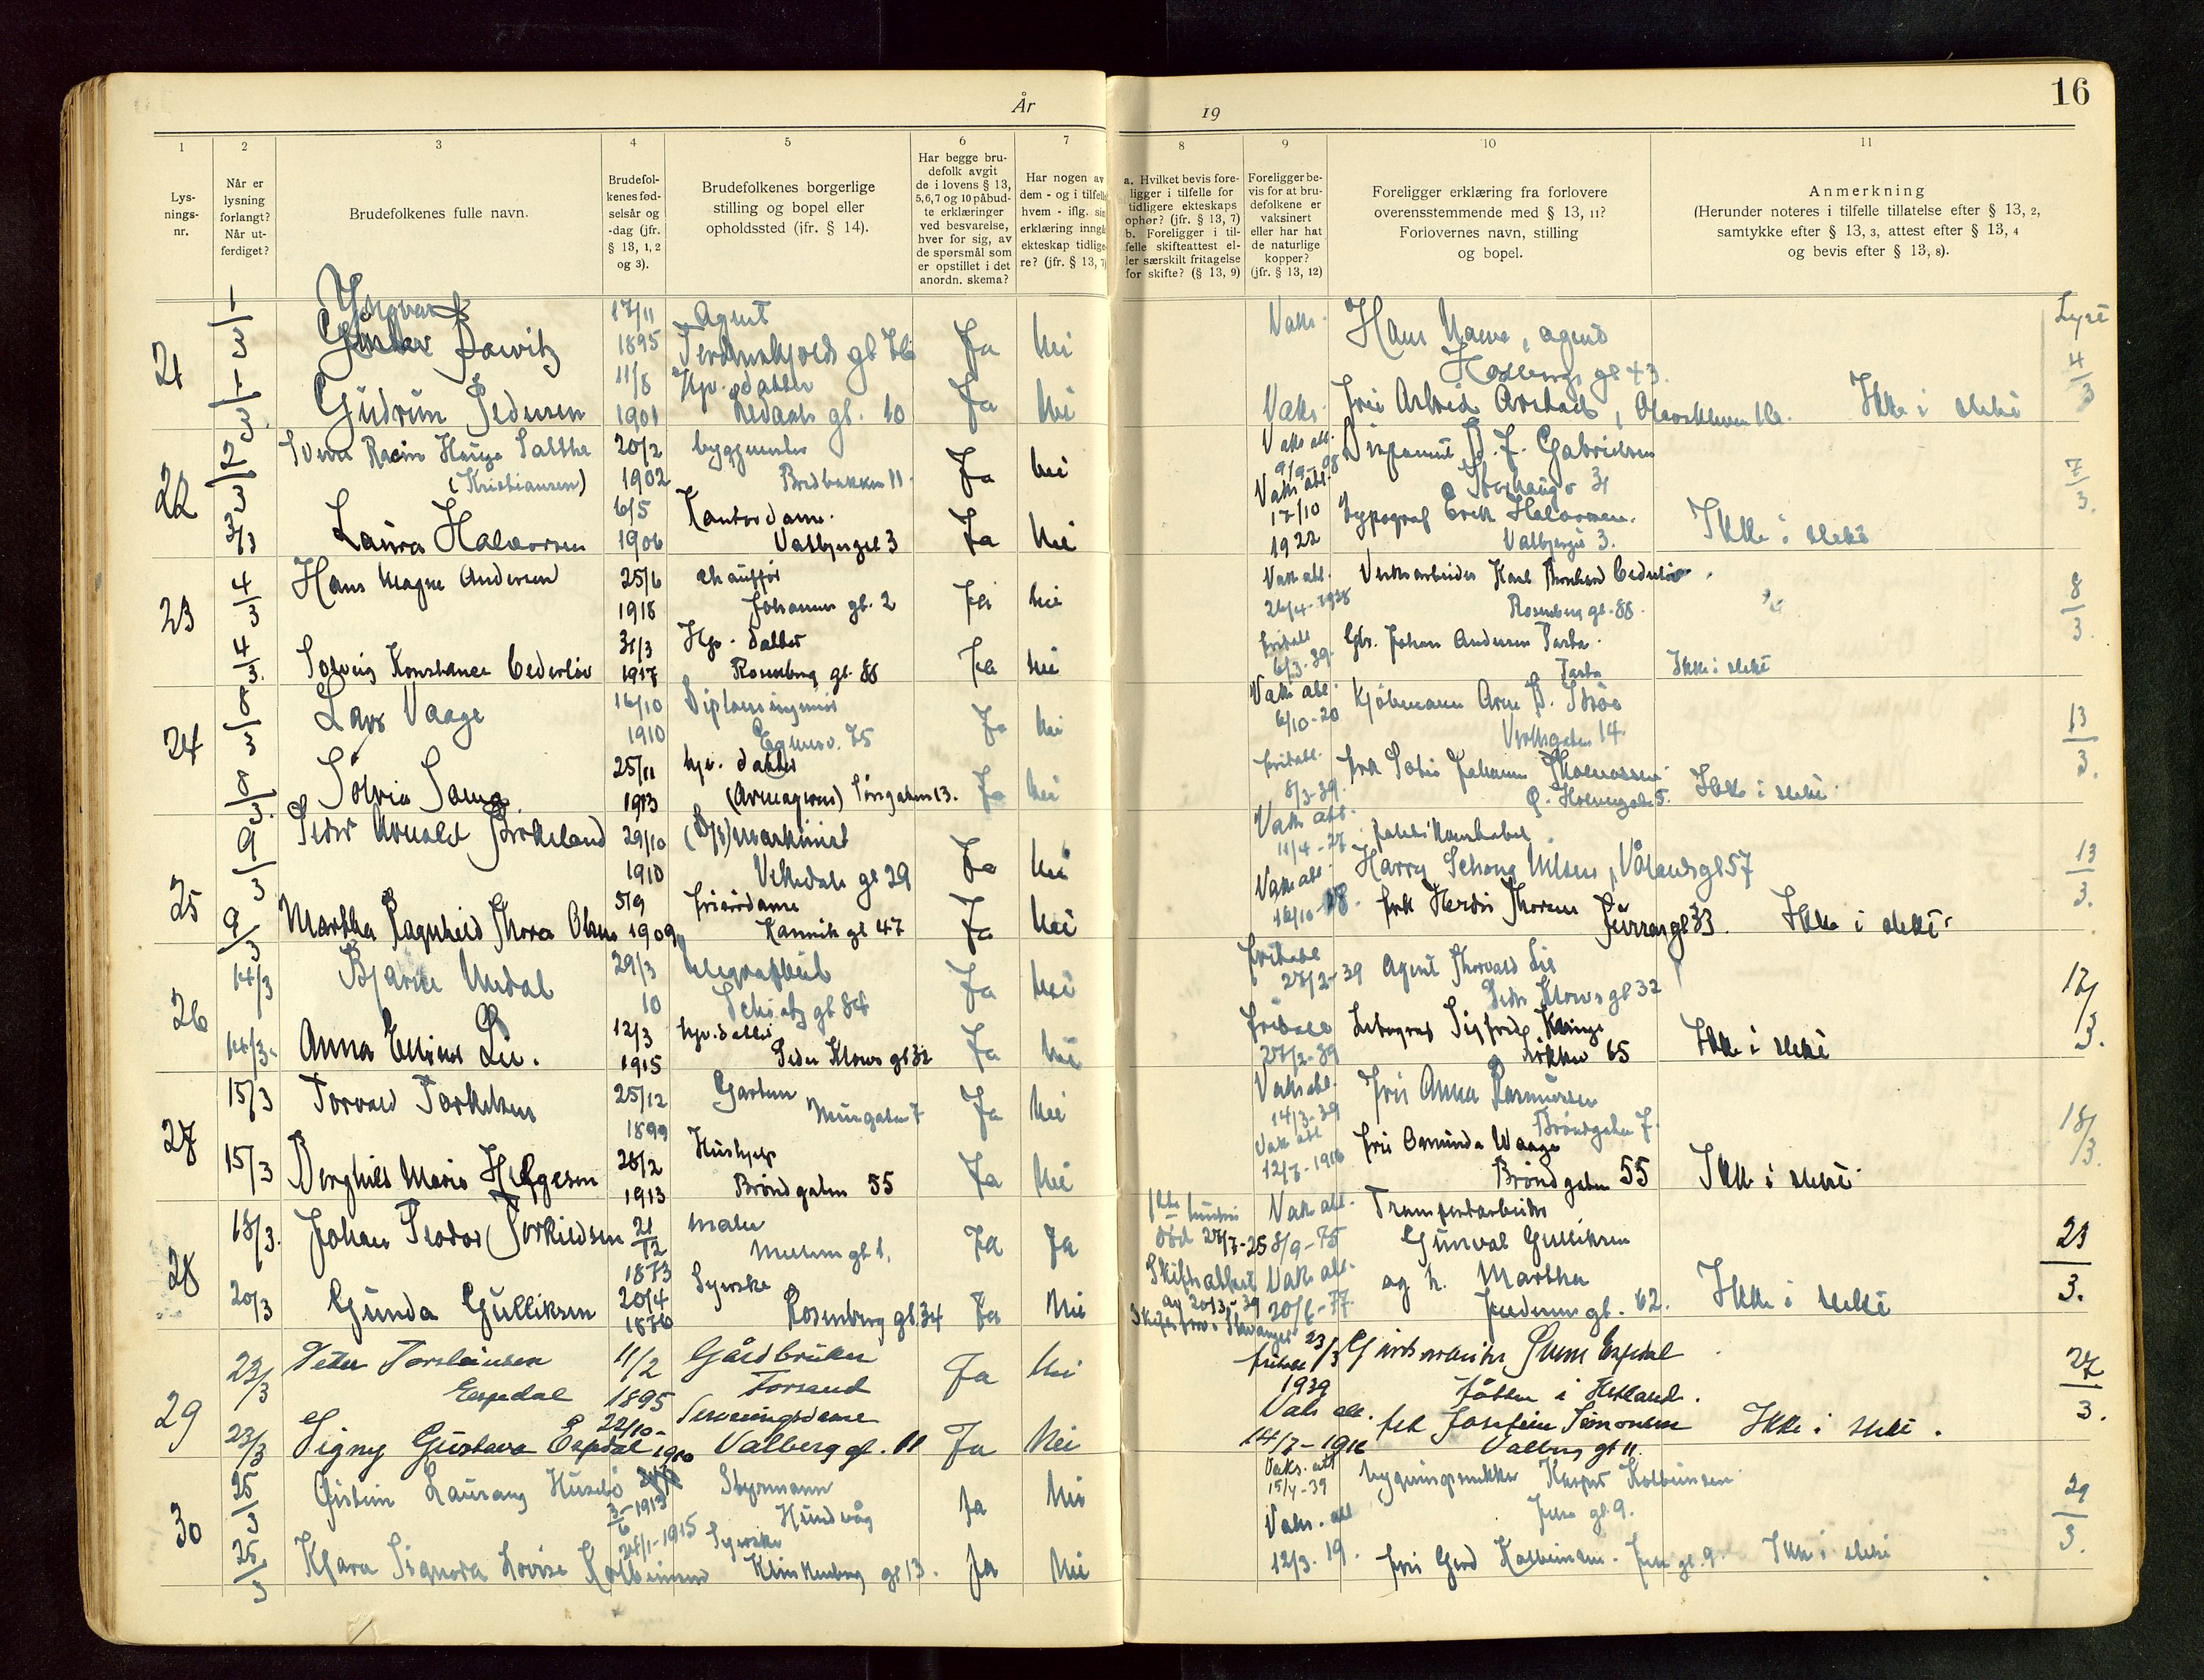 År
19
16
1
Lys-
nings-
nr.
2
Når er
lysning
forlangt?
Når ut-
ferdiget?
3
Brudefolkenes fulle navn.
4
Brudefol-
kenes fød-
selsår og
-dag (jfr.
§ 13, 1, 2
og 3).
5
Brudefolkenes borgerlige
stilling og bopel eller
opholdssted (jfr. § 14).
6
Har begge bru-
defolk avgit
de i lovens § 13,
5,6,7 og 10 påbud-
te erklæringer
ved besvarelse,
hver for sig, av
de spørsmål som
er opstillet i det
anordn. skema?
7
Har nogen av
dem - og i tilfelle
hvem - iflg. sin
erklæring inngå
ekteskap tidlige-
re? (jfr. § 13, 7)
8
a. Hvilket bevis fore-
ligger i tilfelle for
tidligere ekteskaps
ophør? (jfr. § 13, 7)
b. Foreligger i til-
felle skifteattest el-
ler særskilt fritagelse
for skifte? (§ 13, 9)
9
Foreligger be-
vis for at bru-
defolkene er
vaksinert
eller har hat
de naturlige
kopper?
(jfr. § 13, 12)
10
Foreligger erklæring fra forlovere
overensstemmende med § 13, 11?
Forlovernes navn, stilling
og bopel.
11
Anmerkning
(Herunder noteres i tilfelle tillatelse efter § 13, 2,
samtykke efter § 13, 3, attest efter § 13, 4
og bevis efter § 13, 8).
21
1/3
Yngvar
Dawitz
17/11
1895
Agent
Ja
Nei
Vaks.
Hans
, agent
Holbergs gt 43.
Lyst
4/3
1/3
Gudrun Pedersen
11/8
1901
Hjv. datter
gt. 10
Ja
Nei
Vaks.
Ikke i slekt
22
3/3
Hauge Salthe
(Kristiansen)
20/2
1902
byggmester
Bredbakken 11.
Ja
Nei
Vaks att.
9/9-08
Disponent
Gabrielsen
Storhaug v 31
7/3.
3/3
Laura Halvorsen
6/5
1906
Kontordame.
Valbjerget 3
Ja
Nei
Vaks att.
17/10
1922
Typograf Erik Halvorsen.
Valbjerget 3.
Ikke i slekt
23
4/3
Hans Magne Andersen
25/6
1918
chauffør
Johannes gt. 2
Ja
Nei
Vaks att.
26/4-1928
Verksarbeider Karl Bernhard Cederløv.
Rosenberg gt. 88.
8/3.
4/3.
Solveig Konstance Cederløv
31/3
1917
Hjv. datter
Rosenberg gt. 88
Ja
Nei
fritatt
6/3-39.
Gbr. Johan Andersen Tasta.
Tasta
Ikke i slekt
24
8/3
Lars Vaage
16/10
1910
Diplomingeniør
Egnesv. 75
Ja
Nei
Vaks att.
6/10-20
Kjøbmann Arne
Verksgaten 14.
13/3.
8/3
25/11
1913
hjv. datter
Ja
Nei
fritatt.
8/3-39.
5.
Ikke i slekt
25
9/3
Birkeland
29/10
1910
maskinist
Vikedals gt 29
Ja
Nei
Vaks att.
11/4-27
Harry Schong Nilsen, Vålandsgt 57
13/3.
9/3
Martha Ragnhild Thora Olsen
5/9
1909
frisørdame
Kannik gt 47
Ja
Nei
Vaks att
16/10-18.
frk Herdis Thorsen
33.
Ikke i slekt.
26
14/3
Bjarne Undal
29/3
10
telegrafbud
gt 84
Ja
Nei
fritatt
27/2-39
Agent Thorvald Lie
Peder Klows gt 32
17/3.
14/3.
Anna Elinor Lie.
12/3
1915
hjv. datter
Peder Klows gt 32
Ja
Nei
fritatt
27/2-39
Litograf Sigfred Klinge
65
Ikke i slekt
27
15/3
Torvald Torkelsen
25/12
1899
Gartner
Murgaten 7
Ja
Nei
Vaks att.
14/3-39
Frøi Anna Rasmussen
Brøndgaten 7.
18/3.
15/3
Borghild Marie Helgesen
28/2
1913
Hushjelp
Brøndgaten 55
Ja
Nei
Vaks att
12/7-1916
Frøi Osmunda Waage
Brøndgaten 55
Ikke i slekt
28
18/3.
Johan Teodor Torkildsen
21/12
1873
maler
Museum gt 1.
Ja
Ja
1ste hustru
død 27/7-25
Vaks att.
8/9-75
Transportarbeider
Gunval Gulliksen
23/3.
20/3
Gunda Gulliksen
20/4
1876
Syerske
Rosenberg gt. 34
Ja
Nei
Skifteattest
av 20/3-39
Skifteforv. i Stavanger
Vaks att.
20/6-77.
og h. Martha
gt. 62.
Ikke i slekt
29
23/3
Peter Torsteinsen
Espedal
11/2
1895
Gårdbruker
Forsand
Ja
Nei
fritatt 23/3
1939
Gårdsarbeider Sven Espedal
Jåtten i Hetland.
27/3.
23/3
Signy Gustava Espedal
22/10-
1900
Serveringsdame
Valberg gt. 11
Ja
Nei
Vaks att.
14/7-1916
frk Josefine Simonsen
Valberg gt 11.
Ikke i slekt.
30
25/3
Husebø
3/6-1913
Styrmann
Hundvåg
Ja
Nei
Vaks. att
15/4-39
bygningssnekker Kasper Kolbeinsen
gt 9.
29/3.
25/3
Klara Signora Lovise Kolbeinsen
24/1-1915
Syerske
Klinkenberg gt 13.
Ja
Nei
Vaks. att
12/3.19.
frøi Gerd Kolbeinsen. gt. 9.
Ikke i slekt